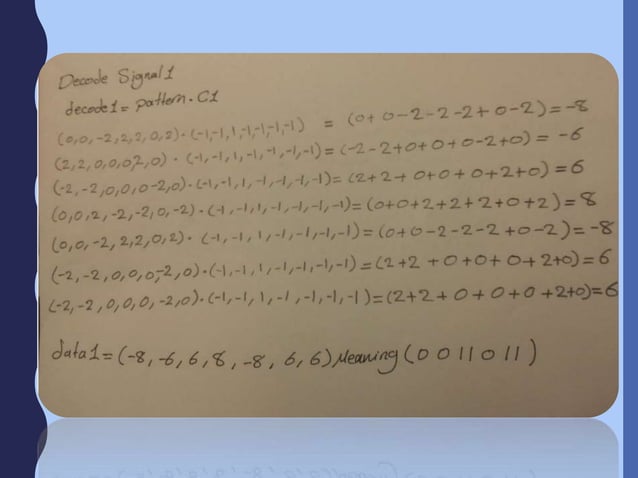 Decode Signal 1
decode1 = pattern . C1
(0,0,-2,2,2,0,2)·(-1,-1,1,-1,-1,-1,-1) = (0+0-2-2-2+0-2)=-8
(2,2,0,0,0,2,0)·(-1,-1,1,-1,-1,-1,-1)=(-2-2+0+0+0-2+0)=-6
(-2,-2,0,0,0-2,0)·(-1,-1,1,-1,-1,-1,-1)=(2+2+0+0+0+2+0)=6
(0,0,2,-2,-2,0,-2)·(-1,-1,1,-1,-1,-1,-1)=(0+0+2+2+2+0+2)=8
(0,0,-2,2,2,0,2)·(-1,-1,1,-1,-1,-1,-1)=(0+0-2-2-2+0-2)=-8
(-2,-2,0,0,0,-2,0)·(-1,-1,1,-1,-1,-1,-1)=(2+2+0+0+0+2+0)=6
(-2,-2,0,0,0,-2,0)·(-1,-1,1,-1,-1,-1,-1)=(2+2+0+0+0+2+0)=6
data1=(-8,-6,6,8,-8,6,6) Meaning (0011011)